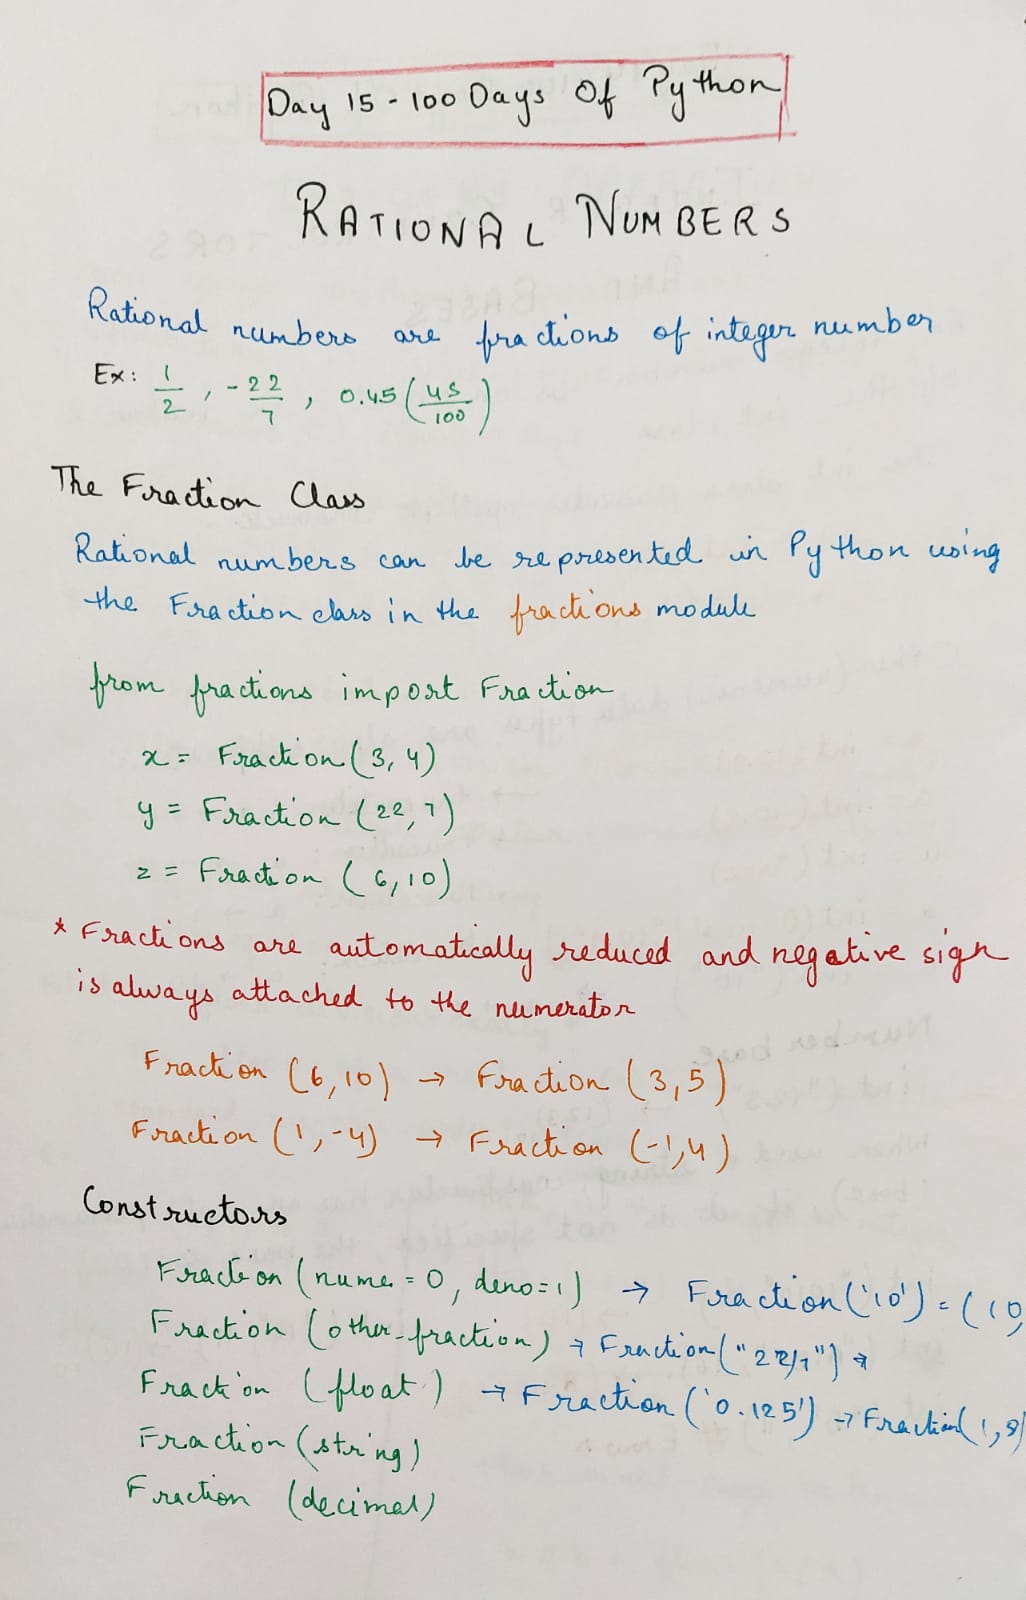 Day 15 - 100 Days Of Python
RATIONAL NUMBERS
Rational numbers are fractions of integer number
Ex: 1/2, -22/7, 0.45 (45/100)
The Fraction Class
Rational numbers can be represented in Python using
the Fraction class in the fractions module
from fractions import Fraction
x = Fraction(3, 4)
y = Fraction (22, 7)
z = Fraction (6, 10)
* Fractions are automatically reduced and negative sign
is always attached to the numerator
Fraction (6, 10) → Fraction (3, 5)
Fraction (1, -4) → Fraction (-1, 4)
Constructors
Fraction (nume = 0, deno=1) → Fraction('10') = (10,
Fraction (other_fraction) → Fraction("22/7") →
Fraction (float) → Fraction ('0.125') → Fraction(1, 8)
Fraction (string)
Fraction (decimal)